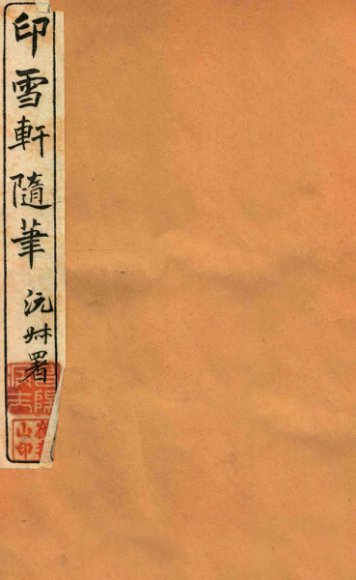 印雪軒隨筆
沅叔署
山印